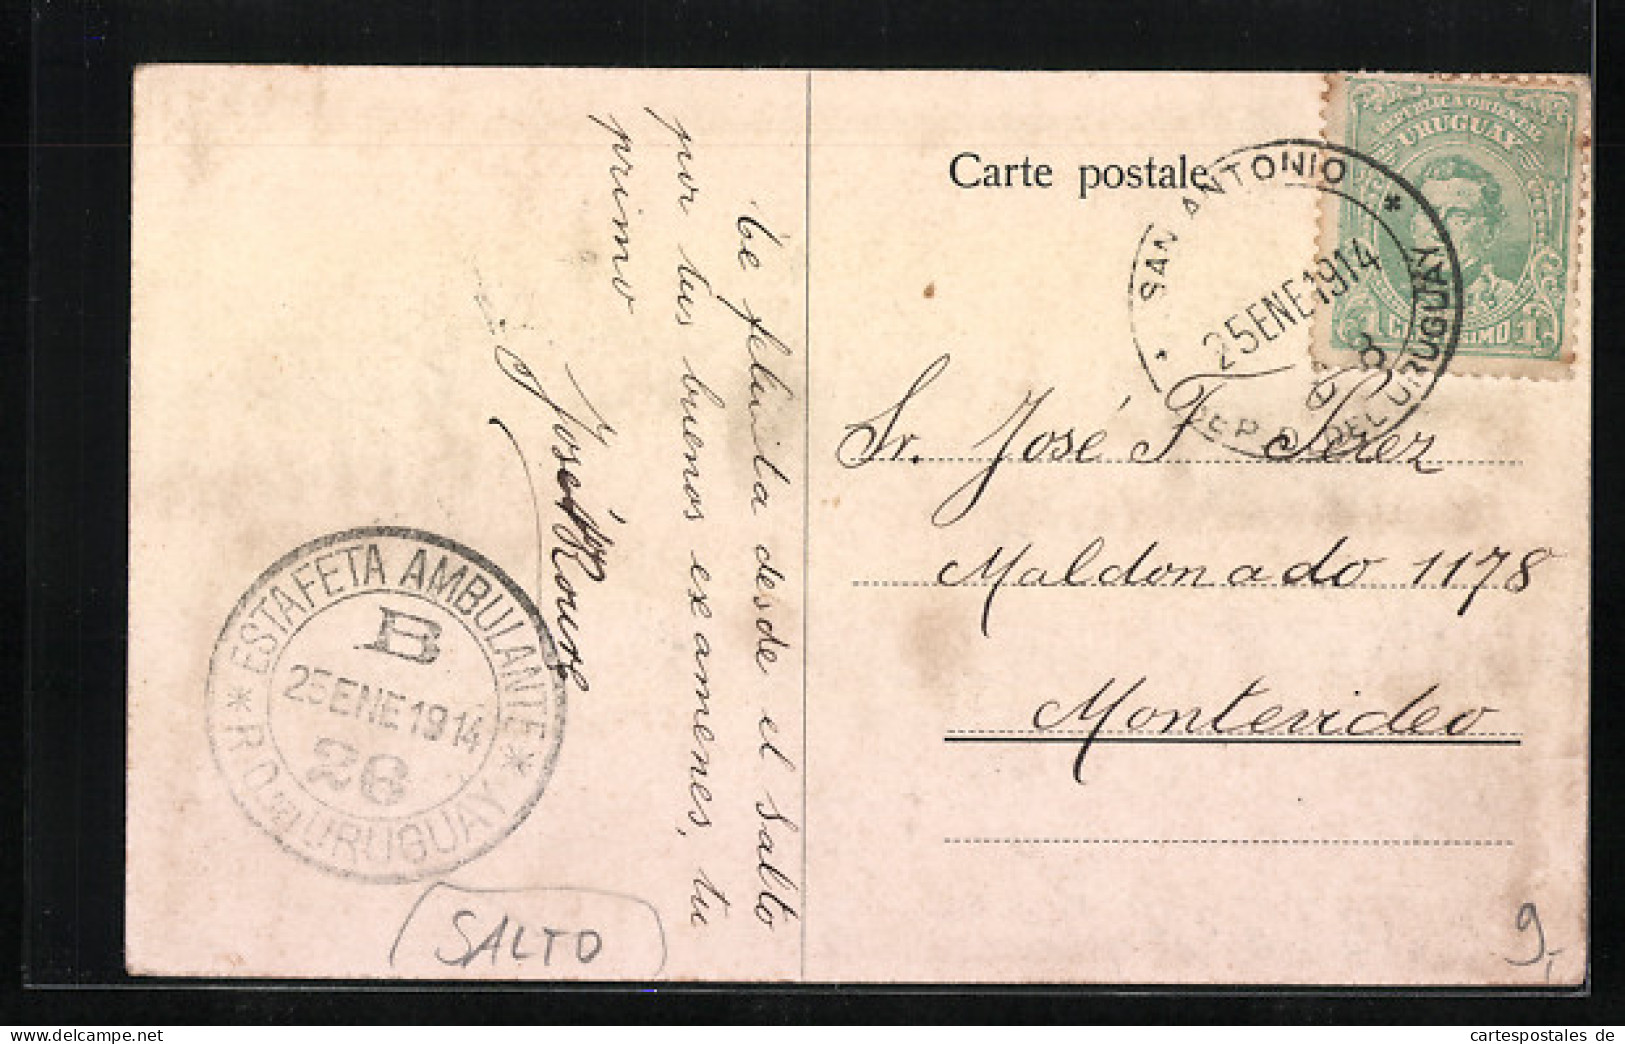 Carte postale
REPUBLICA ORIENTAL
URUGUAY
1 1
SAN ANTONIO
25 ENE 1914
REP. O. DEL URUGUAY
Sr. José F Perez
Maldonado 1178
Montevideo
Te felicita desde el Salto
por tus buenos examenes, tu
primo
José
ESTAFETA AMBULANTE
B
25 ENE 1914
26
URUGUAY
SALTO
9,-
cartespostales de